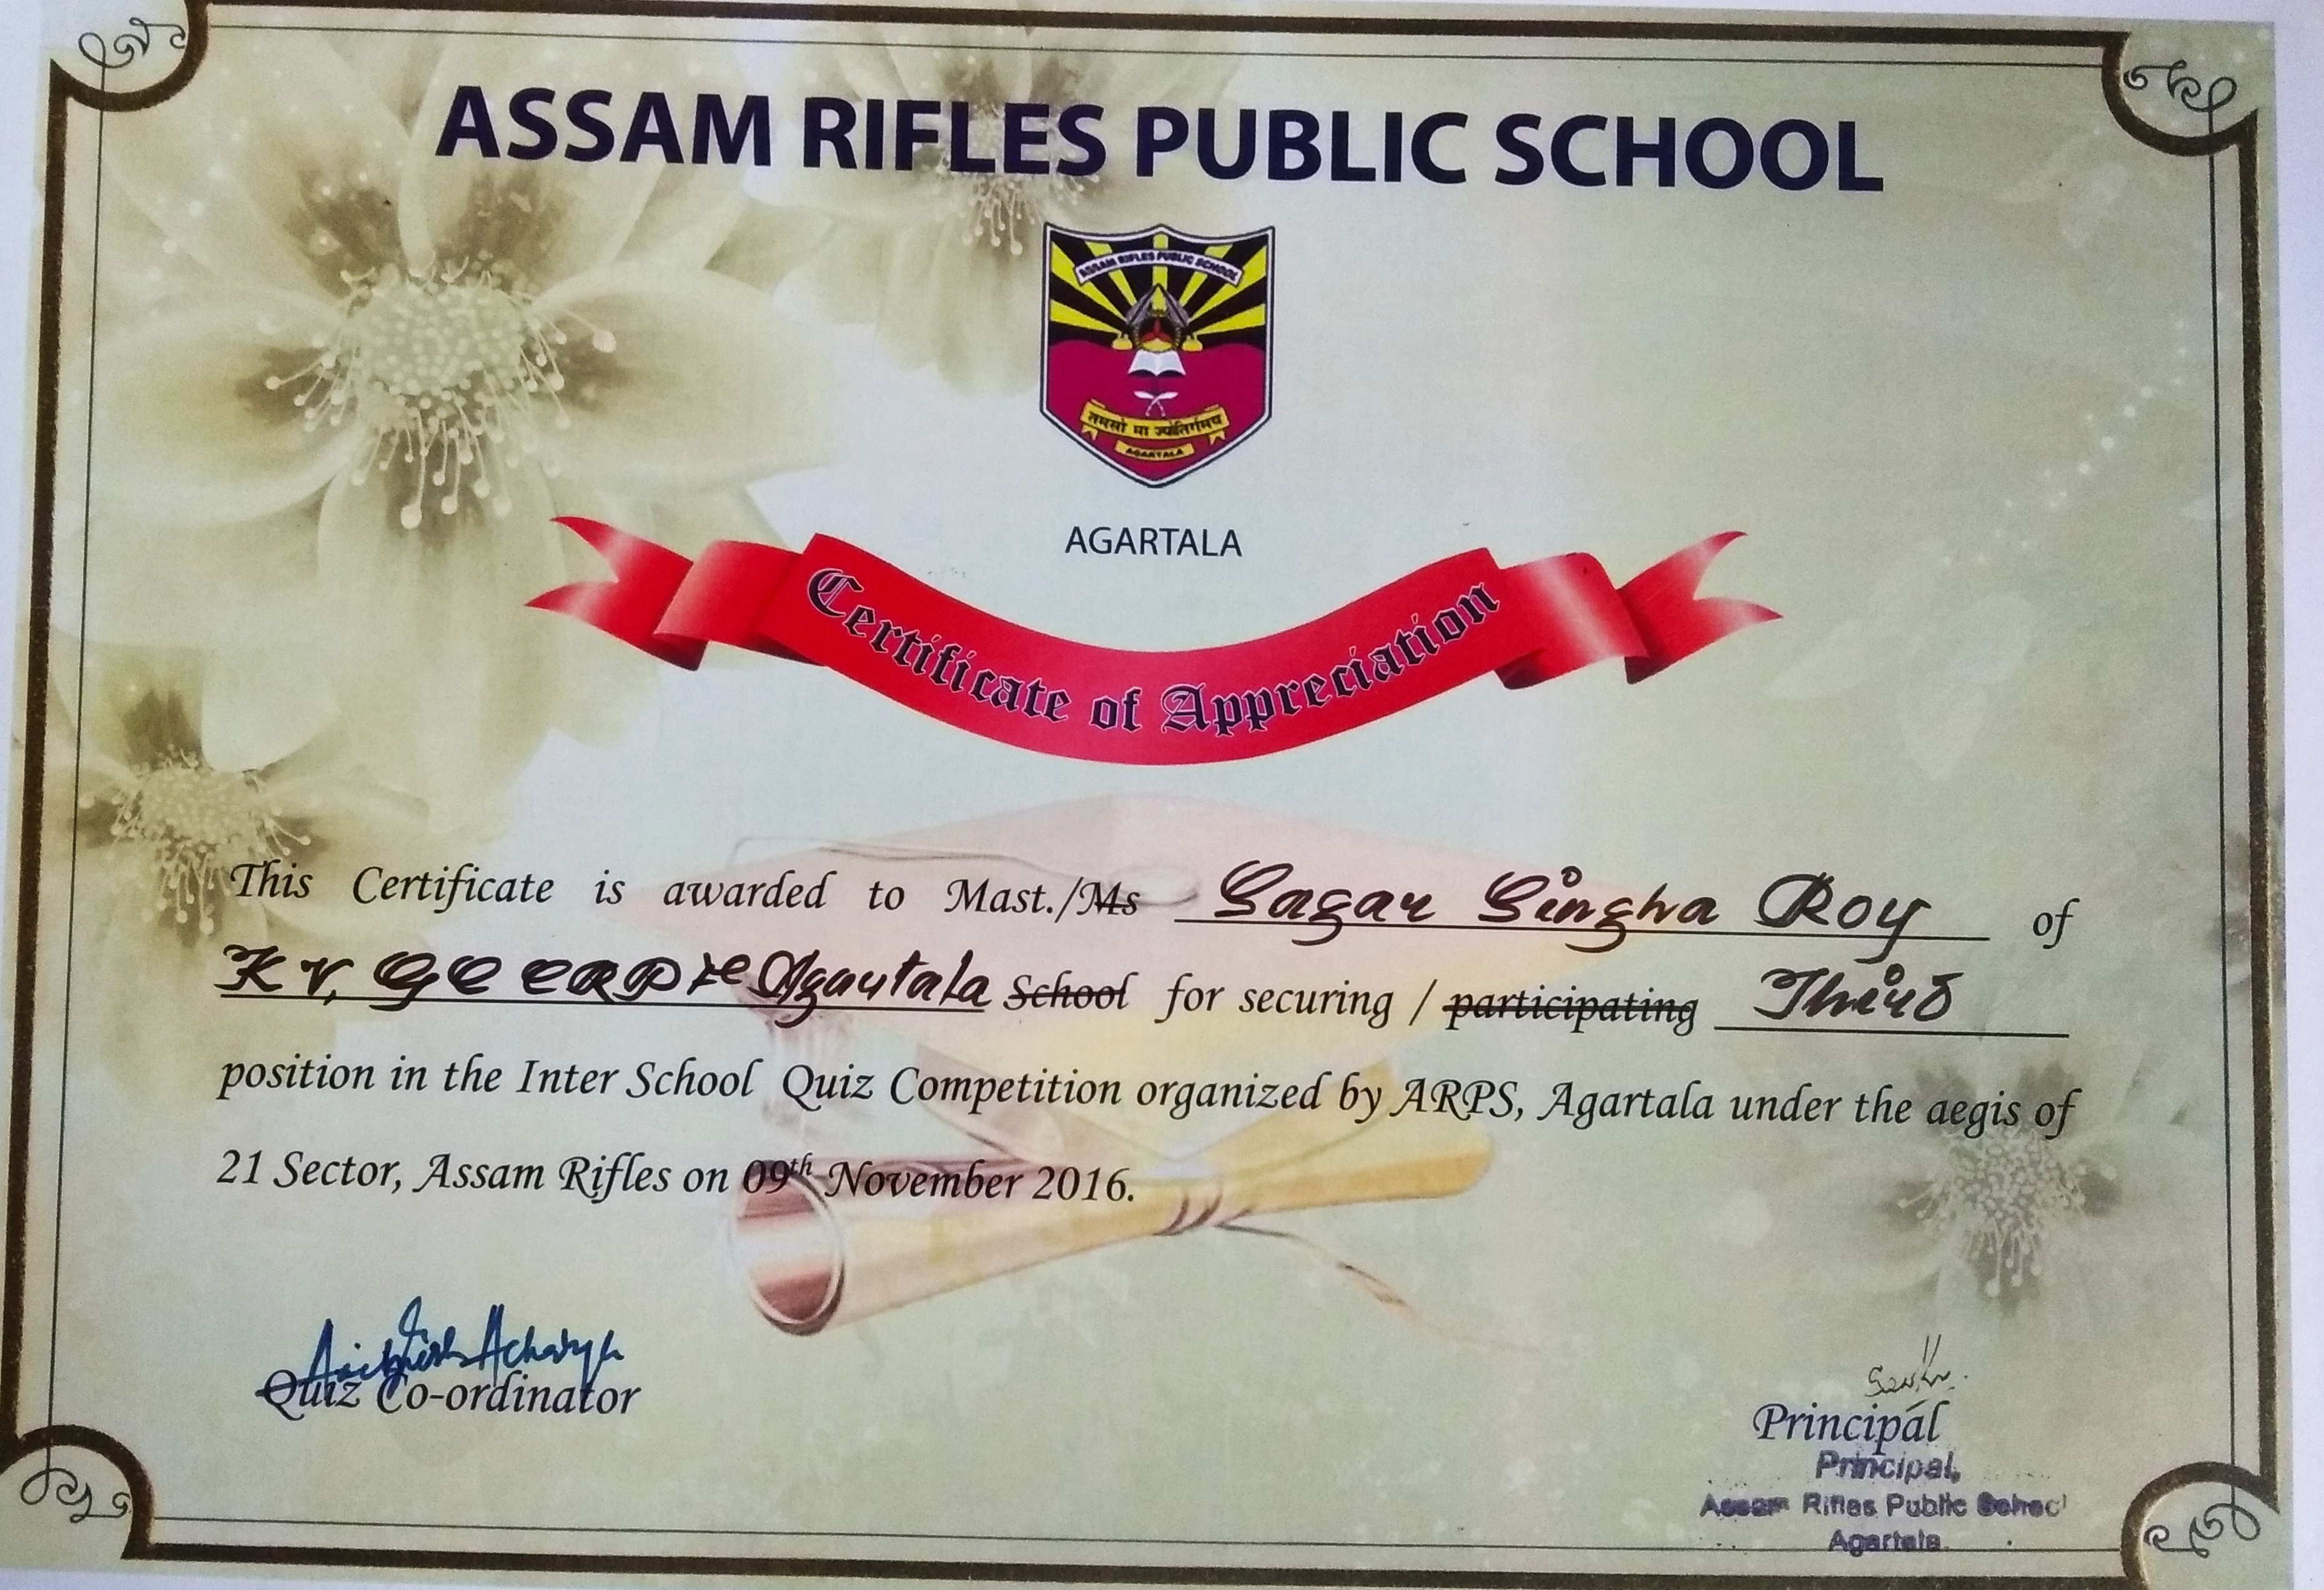 ASSAM RIFLES PUBLIC SCHOOL
ASSAM RIFLES PUBLIC SCHOOL
तमसो मा ज्योतिर्गमय
AGARTALA
AGARTALA
Certificate of Appreciation
This Certificate is awarded to Mast./Ms Sagar Singha Roy of
K V, GC CRPF Agartala School for securing / participating Third
position in the Inter School Quiz Competition organized by ARPS, Agartala under the aegis of
21 Sector, Assam Rifles on 09th November 2016.
Acharya
Quiz Co-ordinator
Principal
Principal,
Assam Rifles Public School
Agartala.